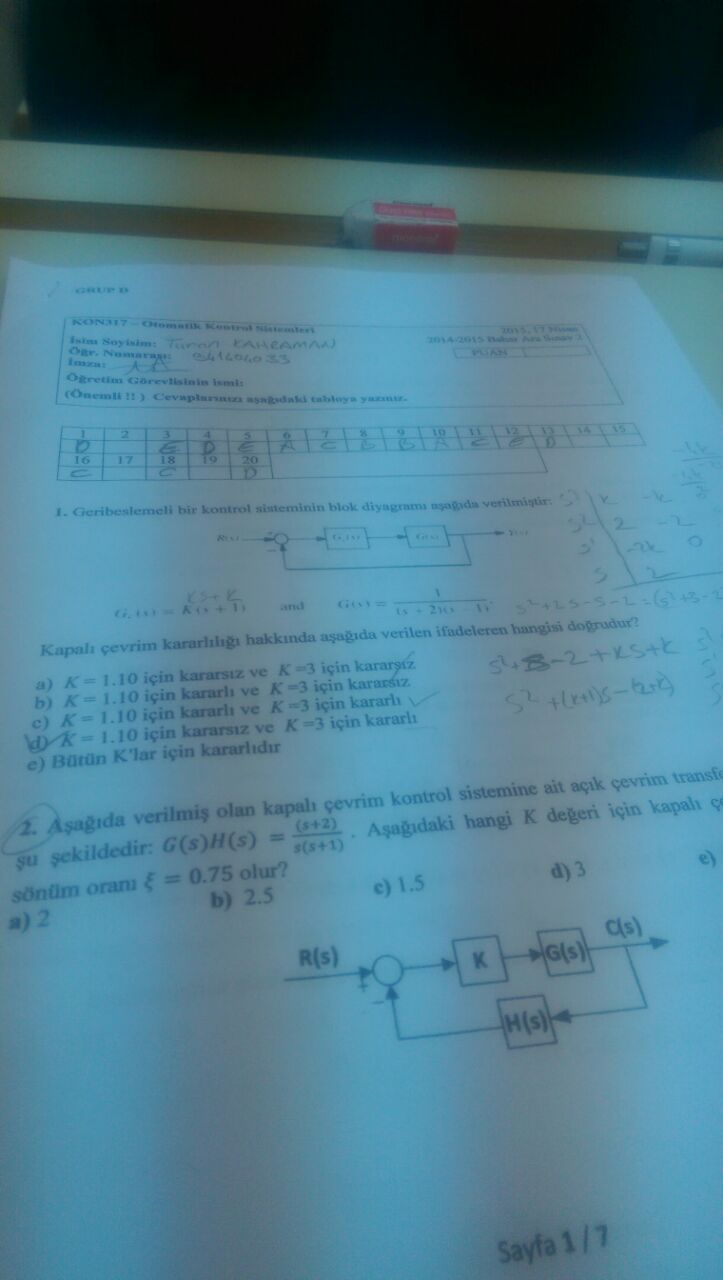 GRUP D
KON317 – Otomatik Kontrol Sistemleri 2015, 17 Nisan
İsim Soyisim: Turan KAHRAMAN 2014-2015 Bahar Ara Sınav 2
Öğr. Numarası: 041404033 PUAN
İmza:
Öğretim Görevlisinin ismi:
(Önemli !! ) Cevaplarınızı aşağıdaki tabloya yazınız.
1 2 3 4 5 6 7 8 9 10 11 12 13 14 15
D E D E A C B B A C E D
16 17 18 19 20
C C D
1. Geribeslemeli bir kontrol sisteminin blok diyagramı aşağıda verilmiştir:
s² 2 -2
s¹ -2k 0
R(s) G_c(s) G(s) Y(s)
s 2
ks+k
G_c(s) = K(s + 1) and G(s) = 1/((s + 2)(s − 1))
Kapalı çevrim kararlılığı hakkında aşağıda verilen ifadeleren hangisi doğrudur?
a) K = 1.10 için kararsız ve K =3 için kararsız
b) K = 1.10 için kararlı ve K =3 için kararsız
c) K = 1.10 için kararlı ve K =3 için kararlı
d) K = 1.10 için kararsız ve K =3 için kararlı
e) Bütün K'lar için kararlıdır
2. Aşağıda verilmiş olan kapalı çevrim kontrol sistemine ait açık çevrim
şu şekildedir: G(s)H(s) = (s+2)/(s(s+1)) . Aşağıdaki hangi K değeri için kapalı
sönüm oranı ξ = 0.75 olur?
a) 2 b) 2.5 c) 1.5 d) 3 e)
R(s) K G(s) C(s)
+
−
H(s)
Sayfa 1 / 7